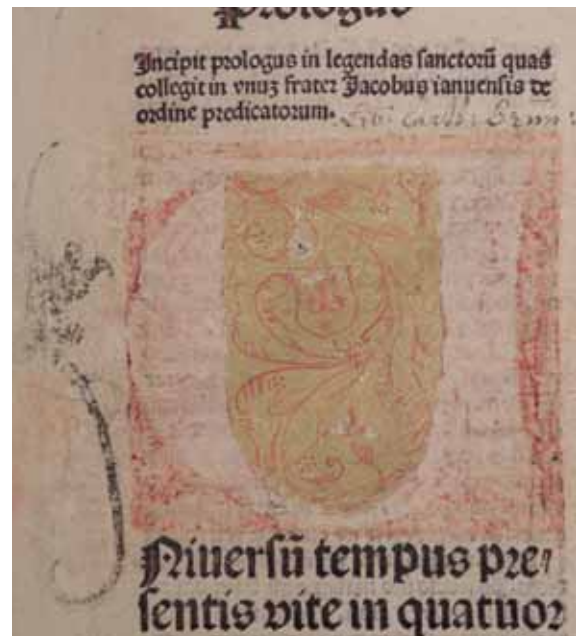 Prologus
Incipit prologus in legendas sanctorū quas
collegit in vnuʒ frater Jacobus ianuensis de
ordine predicatorum.
Niuersū tempus pre⸗
sentis vite in quatuor